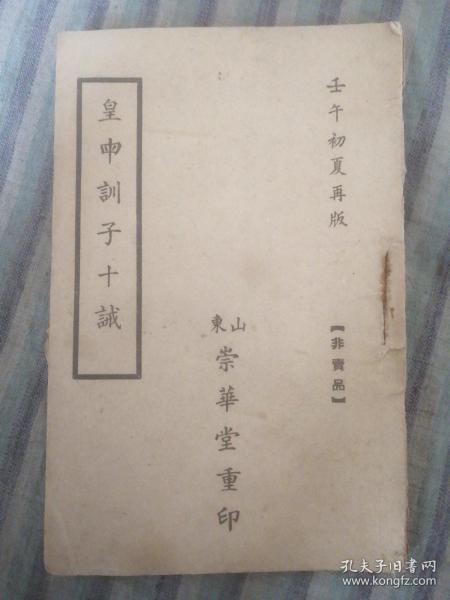 壬午初夏再版
【非賣品】
山東
崇華堂重印
皇申訓子十誡
孔夫子旧书网
www.kongfz.com